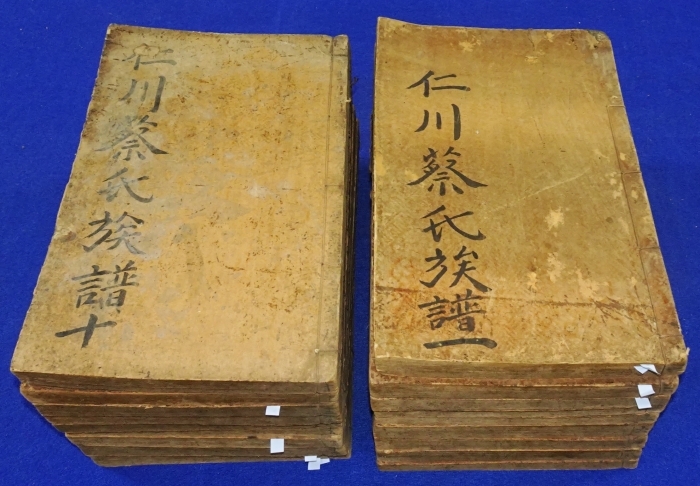 仁川蔡氏族譜十
仁川蔡氏族譜一